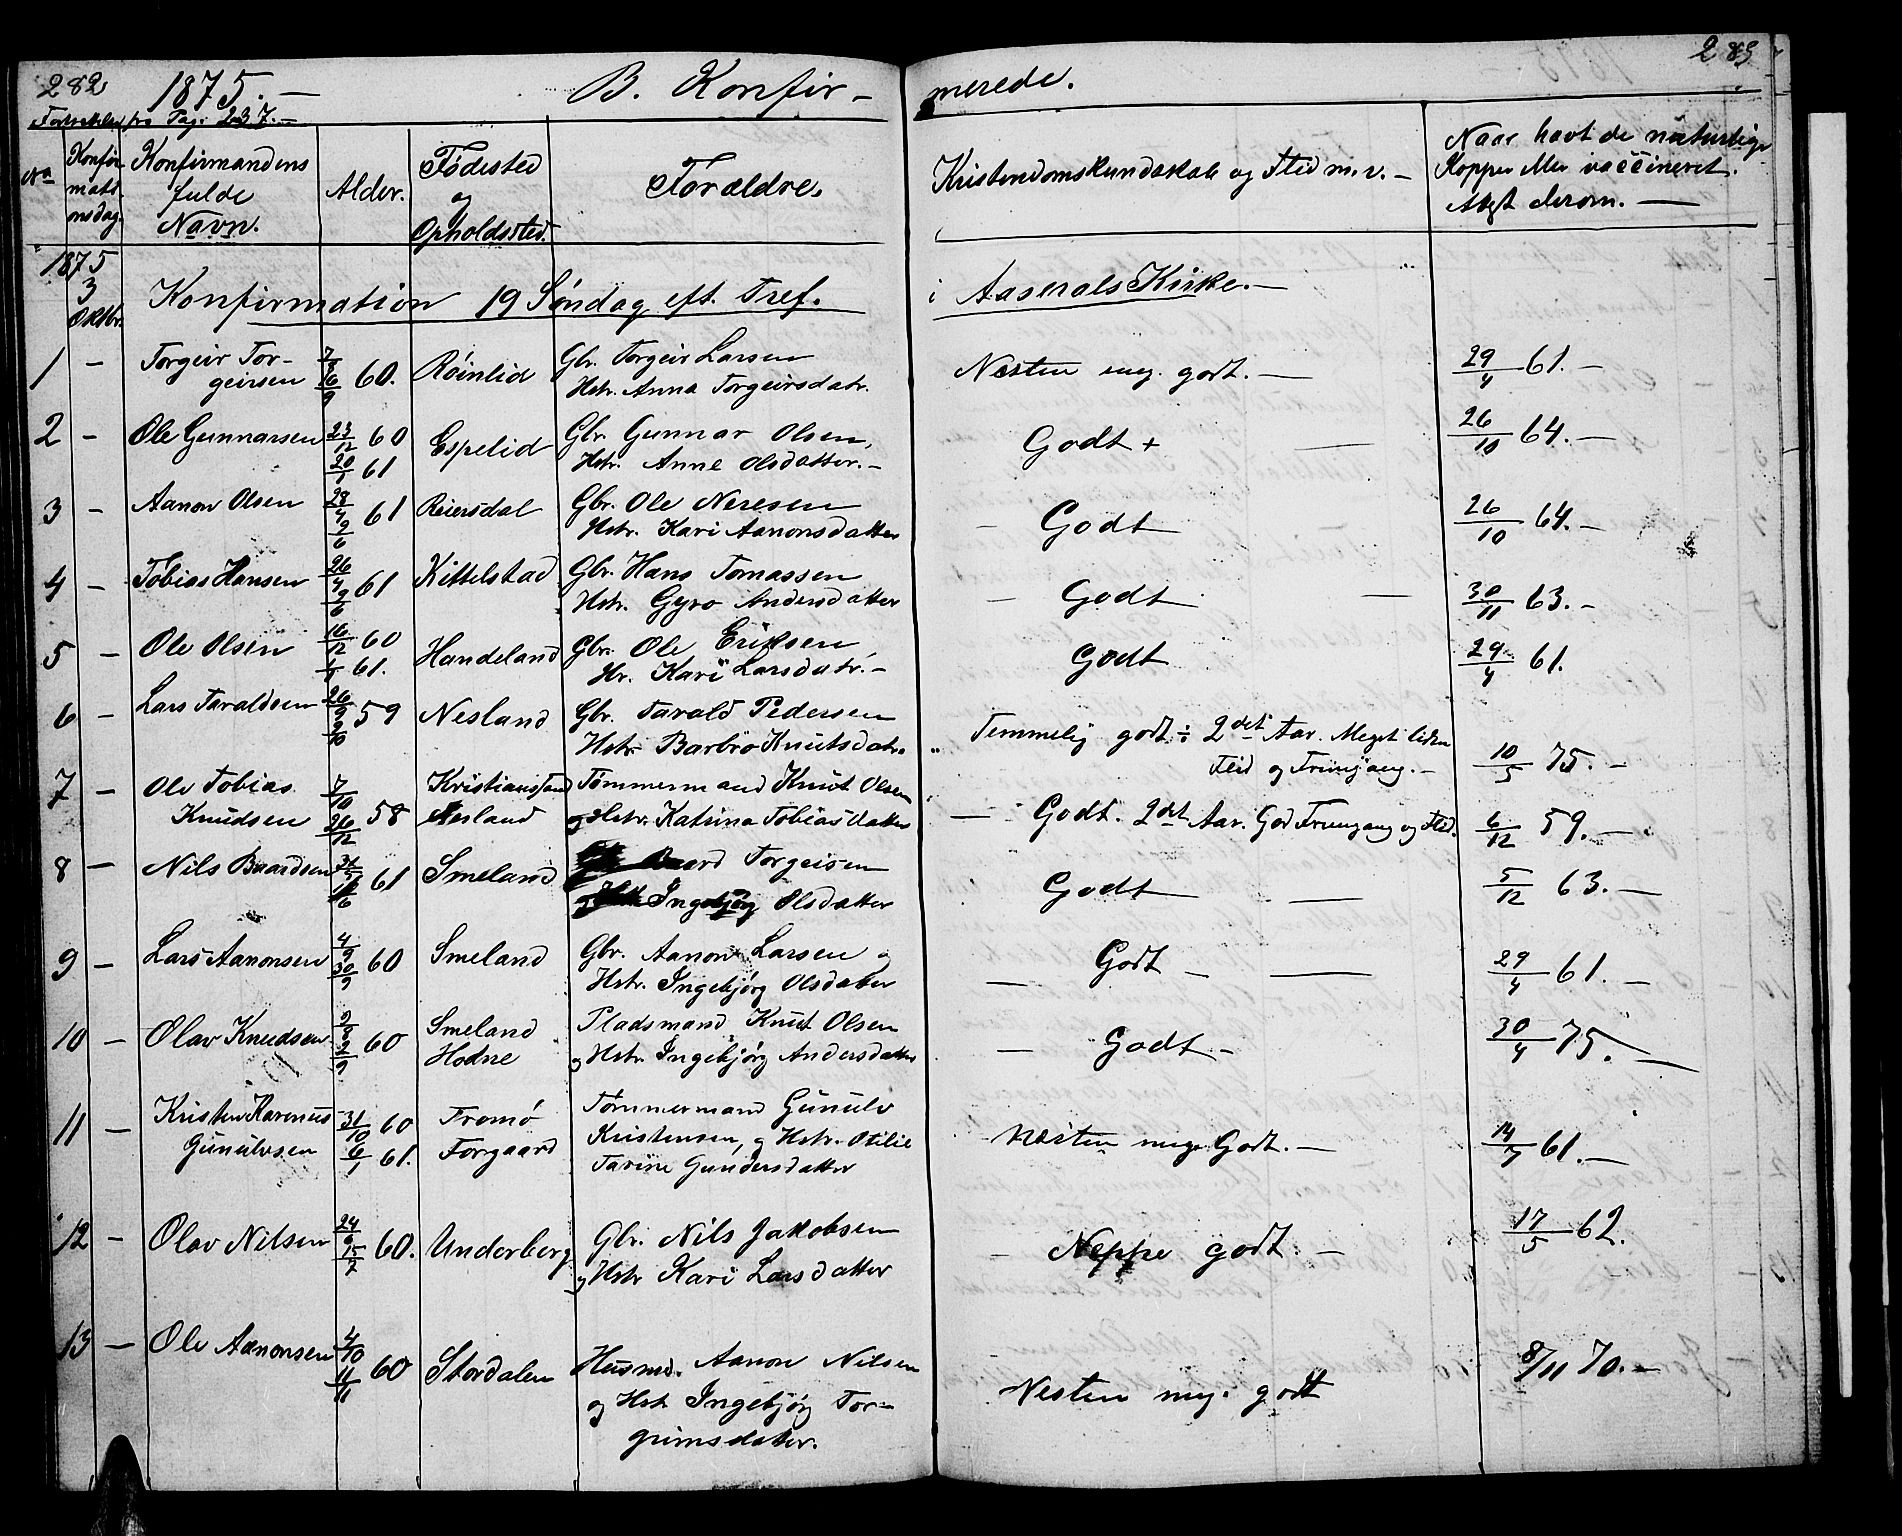 282 1875. — B. Konfir- merede. 283
Fortsættelse fra Pag: 237. —
No Konfirmationsdag. Konfirmandens fulde Navn. Alder. Fødested og Opholdssted. Forældre. Kristendomskundskab og Flid m.v. — Naar havt de naturlige Kopper eller vaccineret. Attest derom. —
1875
3 Oktbr. Konfirmation 19 Søndag eft. Tref. i Aaserals Kirke. —
1 — Torgeir Tor- 7/8 60. Røinlid Gbr. Torgeir Larsen Næsten meg. godt. — 29/4 61. —
geirsen 16/9 Hstr. Anna Torgeirsdatr.
2 — Ole Gunnarsen 23/12 60 Espelid Gbr. Gunnar Olsen, Godt + — 26/10 64. —
20/1 61 Hstr. Anne Olsdatter. —
3 — Aanon Olsen 28/4 61 Reiersdal Gbr. Ole Neresen — Godt 26/10 64. —
9/6 Hstr. Kari Aanonsdatter
4 — Tobias Hansen 26/4 61 Kittelstad Gbr. Hans Tomassen — Godt — 30/11 63. —
9/6 Hstr. Gyro Andersdatter
5 — Ole Olsen 16/12 60 Handeland Gbr. Ole Eriksen Godt 29/4 61.
61. Hr. Kari Larsdatr. —
6 — Lars Taraldsen 26/9 59 Nesland Gbr. Tarald Pedersen Temmelig godt ÷ 2det Aar. Meget liden
9/10 Hstr. Barbro Knutsdatr. Flid og Fremgang. — 10/5 75. —
7 — Ole Tobias 7/10 58 Kristianssand Tømmermand Knut Olsen — Godt. 2det Aar. God Fremgang og Flid. 6/12 59. —
Knudsen 26/12 Nesland og Hstr. Katrina Tobiasdatter
8 — Nils Baardsen 61 Smeland Baard Torgeisen Godt — 5/12 63. —
og Ingebjørg Olsdatter
9 — Lars Aanonsen 4/9 60 Smeland Gbr. Aanon Larsen og — Godt — — 29/4 61. —
30/9 Hstr. Ingebjørg Olsdatter
10 — Olav Knudsen 9/8 60 Smeland Pladsmand Knut Olsen — Godt — 30/4 75. —
2/9 Hodne og Hstr. Ingebjørg Andersdatter
11 — Kristen Karenus 31/10 60 Tromø Tømmermand Gunulv Næsten meg. Godt. — 14/7 61. —
Gunulvsen 6/1 61. Forgaard Kristensen, og Hstr. Otilie
Tarine Gundersdatter
12 — Olav Nilsen 24/6 60. Underberg Gbr. Nils Jakobsen — Neppe godt. — 17/5 62.
15/7 og Hstr Kari Larsdatter
13 — Ole Aanonsen 4/10 60 Stordalen Husmd. Aanon Nilsen Næsten meg. godt 8/11 70. —
11/11 og Hst. Ingebjørg Tor-
grimsdatter.